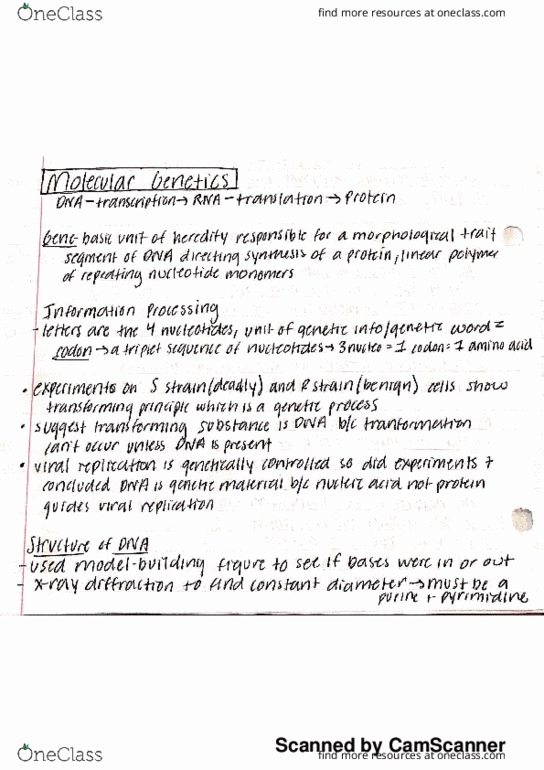 OneClass
find more resources at oneclass.com
Molecular Genetics
DNA - transcription → RNA - translation → Protein
Gene - basic unit of heredity responsible for a morphological trait
segment of DNA directing synthesis of a protein, linear polymer
of repeating nucleotide monomers
Information Processing
- letters are the 4 nucleotides, unit of genetic info/genetic word =
codon → a triplet sequence of nucleotides → 3 nucleo = 1 codon = 1 amino acid
• experiments on S strain (deadly) and R strain (benign) cells show
transforming principle which is a genetic process
• suggest transforming substance is DNA b/c tranformation
can't occur unless DNA is present
• viral replication is genetically controlled so did experiments +
concluded DNA is genetic material b/c nucleic acid not protein
guides viral replication
Structure of DNA
- used model-building figure to see if bases were in or out
- x-ray diffraction to find constant diameter → must be a
purine + pyrimidine
Scanned by CamScanner
OneClass
find more resources at oneclass.com